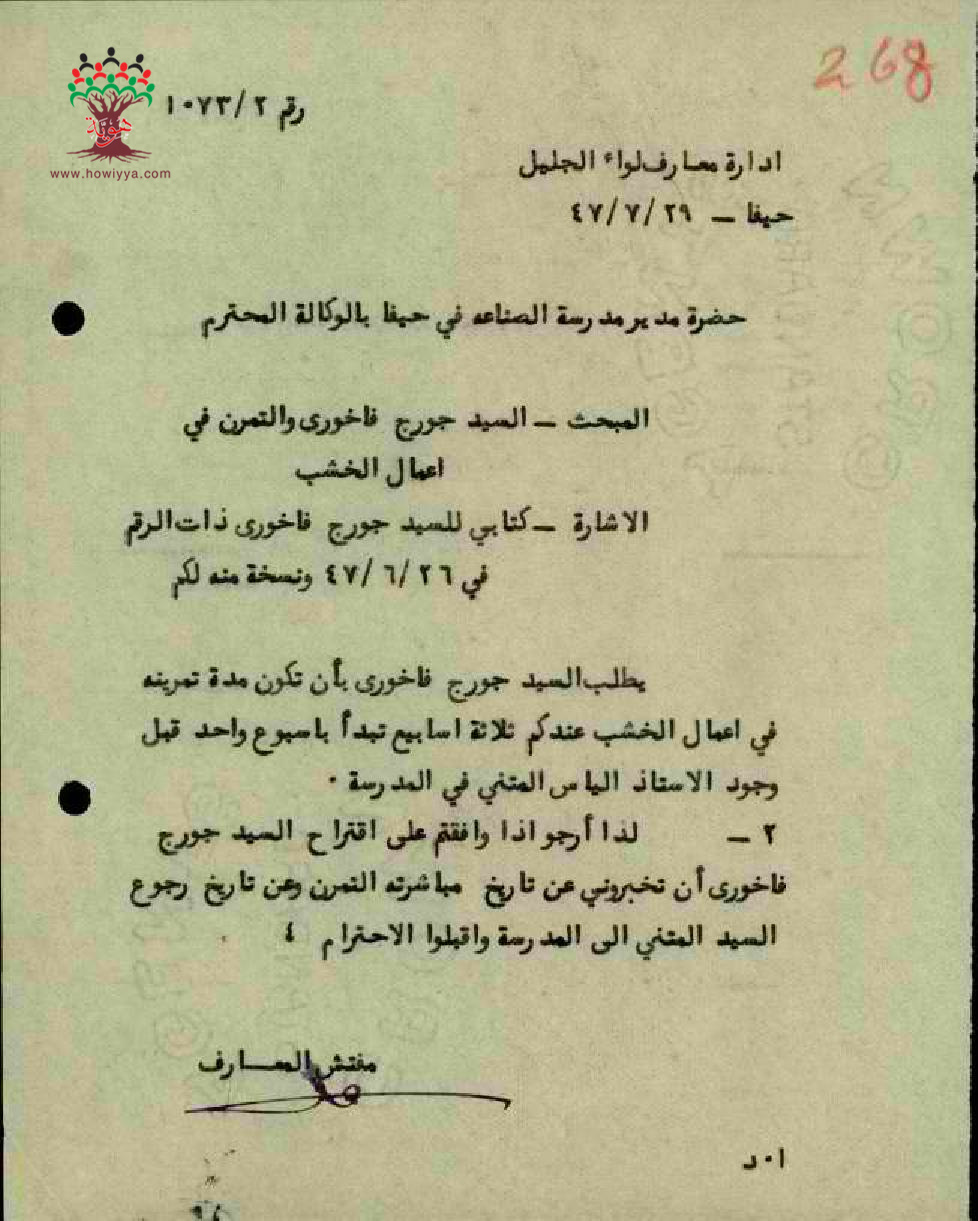 268
رقم ٢/١٠٧٣
هوية
www.howiyya.com
ادارة معارف لواء الجليل
حيفا – ٤٧/٧/٢٩
حضرة مدير مدرسة الصناعه في حيفا بالوكالة المحترم
المبحث – السيد جورج فاخورى والتمرن في
اعمال الخشب
الاشارة – كتابي للسيد جورج فاخورى ذات الرقم
في ٤٧/٦/٢٦ ونسخة منه لكم
يطلب السيد جورج فاخورى بأن تكون مدة تمرينه
في اعمال الخشب عندكم ثلاثة اسابيع تبدأ باسبوع واحد قبل
وجود الاستاذ الياس المتني في المدرسة ٠
٢ – لذا أرجو اذا وافقتم على اقتراح السيد جورج
فاخورى أن تخبروني عن تاريخ مباشرته التمرن وعن تاريخ رجوع
السيد المتني الى المدرسة واقبلوا الاحترام ٤
مفتش المعارف
ا٠د